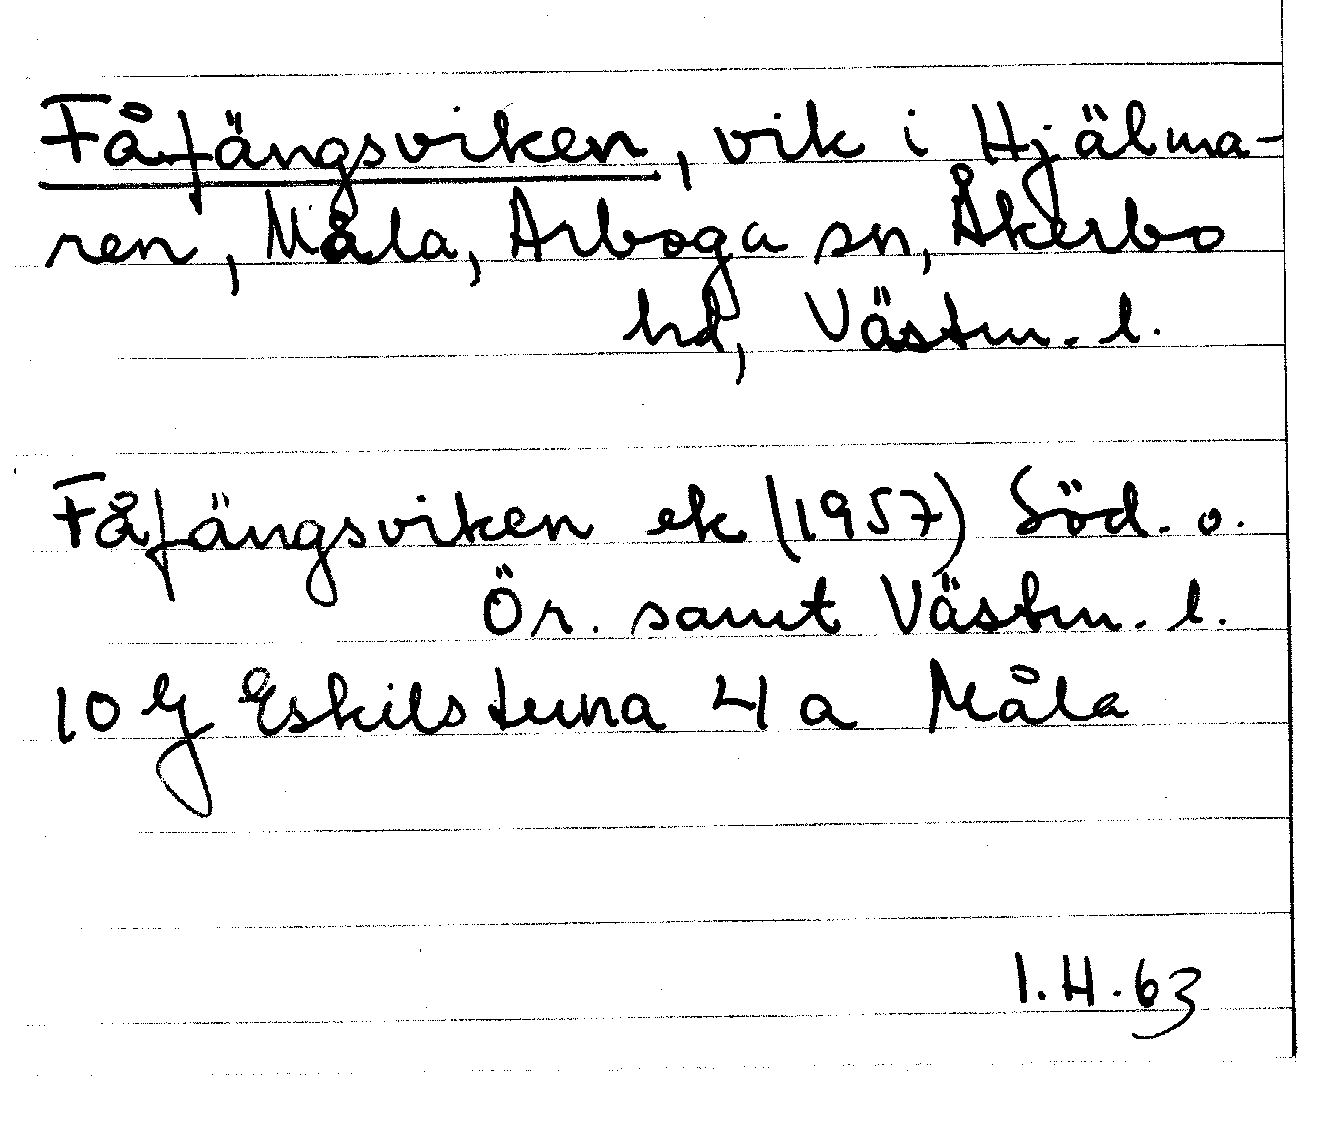 Fåfängsviken, vik i Hjälma-
ren, Måla, Arboga sn, Åkerbo
hd, Västm. l.
Fåfängsviken ek (1957) Söd. o.
Ör. samt Västm. l.
10 G Eskilstuna 4 a Måla
I.H.63